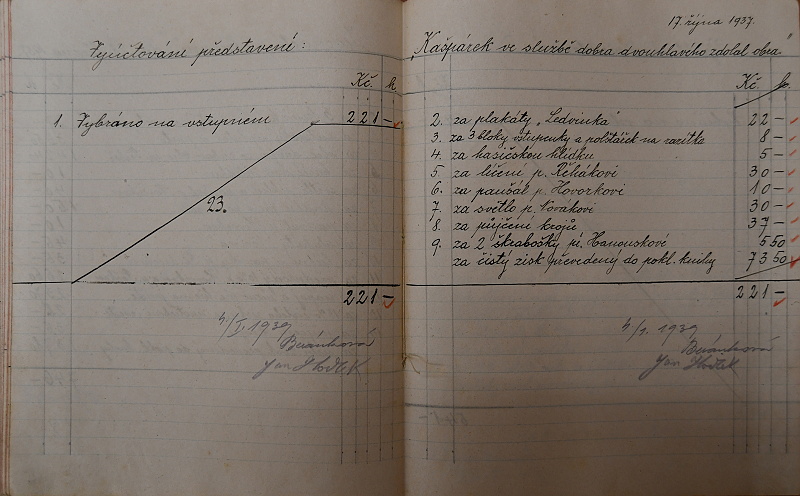 Vyúčtování představení:
Kč. h
1. Vybráno na vstupném 221 -
23.
221 -
4./I. 1939
Beránková
Jan
17. října 1937.
"Kašpárek ve službě dobra dvouhlavého zdolal obra"
Kč. h.
2. za plakáty „Ledvinka" 22 -
3. za 3 bloky vstupenky a polštářek na razítka 8 -
4. za hasičskou hlídku 5 -
5. za líčení p. Řehákovi 30 -
6. za paušál p. Hovorkovi 10 -
7. za světlo p. Novákovi 30 -
8. za půjčení krojů 37 -
9. za 2 škrabošky pí. Hanouskové 5 50
za čistý zisk převedený do pokl. knihy 73 50
221 -
4./1. 1939
Beránková
Jan